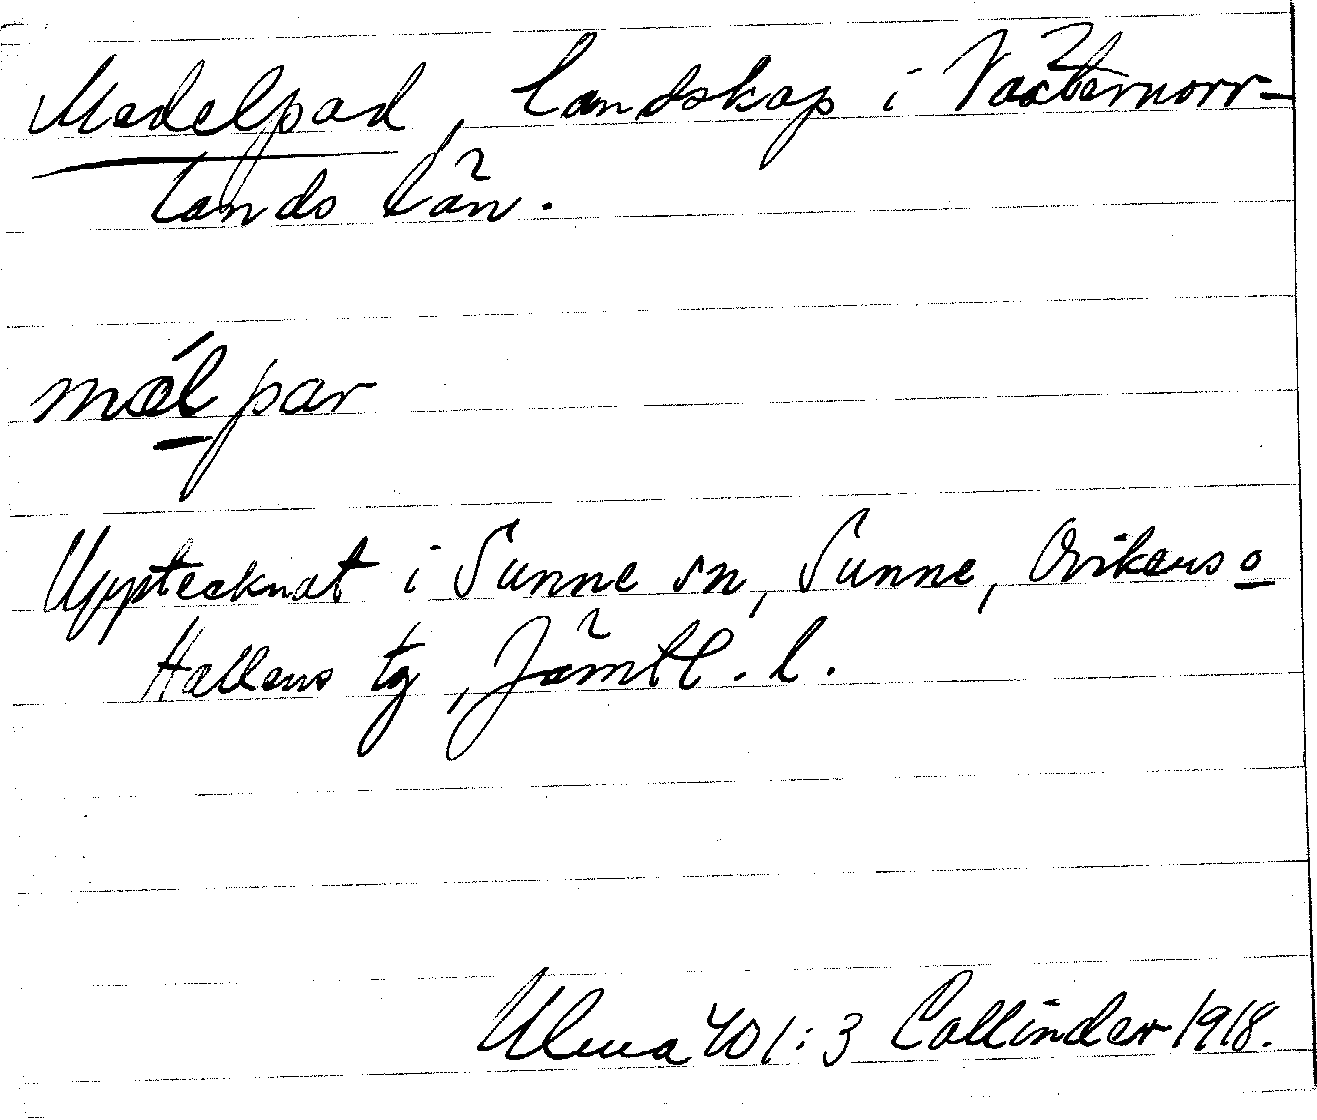 Medelpad, landskap i Västernorr-
lands län.
mǽlpar
Upptecknat i Sunne sn, Sunne, Ovikens o
Hallens tg, Jämtl. l.
Ulma 401:3 Collinder 1918.